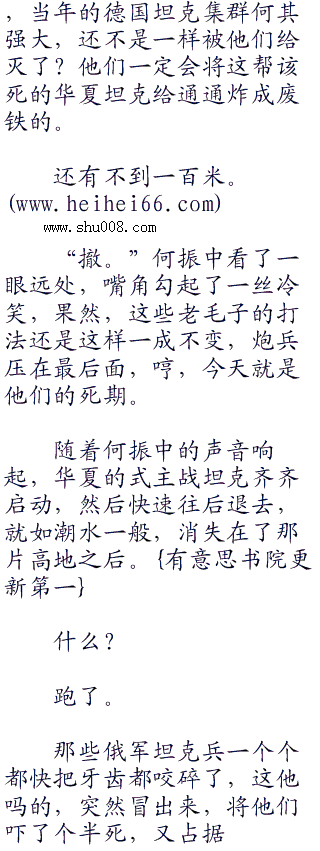 ，当年的德国坦克集群何其
强大，还不是一样被他们给
灭了？他们一定会将这帮该
死的华夏坦克给通通炸成废
铁的。
还有不到一百米。
(www.heihei66.com)
www.shu008.com
“撤。”何振中看了一
眼远处，嘴角勾起了一丝冷
笑，果然，这些老毛子的打
法还是这样一成不变，炮兵
压在最后面，哼，今天就是
他们的死期。
随着何振中的声音响
起，华夏的式主战坦克齐齐
启动，然后快速往后退去，
就如潮水一般，消失在了那
片高地之后。{有意思书院更
新第一}
什么？
跑了。
那些俄军坦克兵一个个
都快把牙齿都咬碎了，这他
吗的，突然冒出来，将他们
吓了个半死，又占据